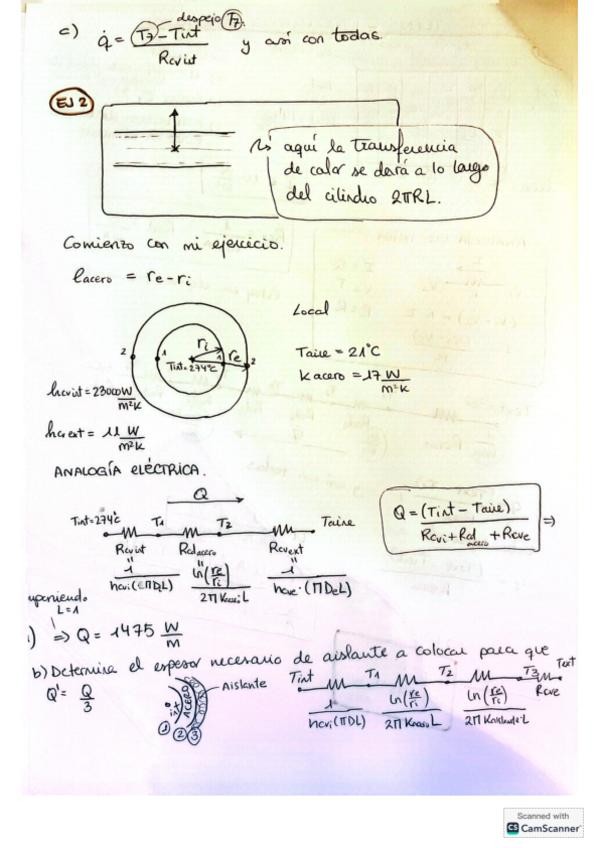 c) q̇ = (T7 - Tint) / Rcvint despejo T7. y así con todas.
EJ 2
aquí la transferencia
de calor se dará a lo largo
del cilindro 2πRL.
Comienzo con mi ejercicio.
lacero = re - ri
Local
ri
re
2 1 1 2
Tint=274°C
Taire = 21°C
K acero = 17 W/m²K
hcvint = 23000 W/m²K
hcrext = 11 W/m²K
ANALOGÍA ELÉCTRICA.
Q
Tint=274°C T1 T2 Taire
Rcvint Rcdacero Rcvext
" " "
1/hcvi(2πDiL) ln(re/ri)/2πKaceroL 1/hcve·(πDeL)
Q = (Tint - Taire) / Rcvi + Rcdacero + Rcve =>
uponiendo
L=1
) => Q = 1475 W/m
b) Determina el espesor necesario de aislante a colocar para que
Q' = Q/3
int ACERO Aislante
1 2 3
Tint T1 T2 T3 Text
Rcve
1/hcvi(πDL) ln(re/ri)/2πKaceroL ln(re/ri)/2πKaislante·L
Scanned with
CS CamScanner